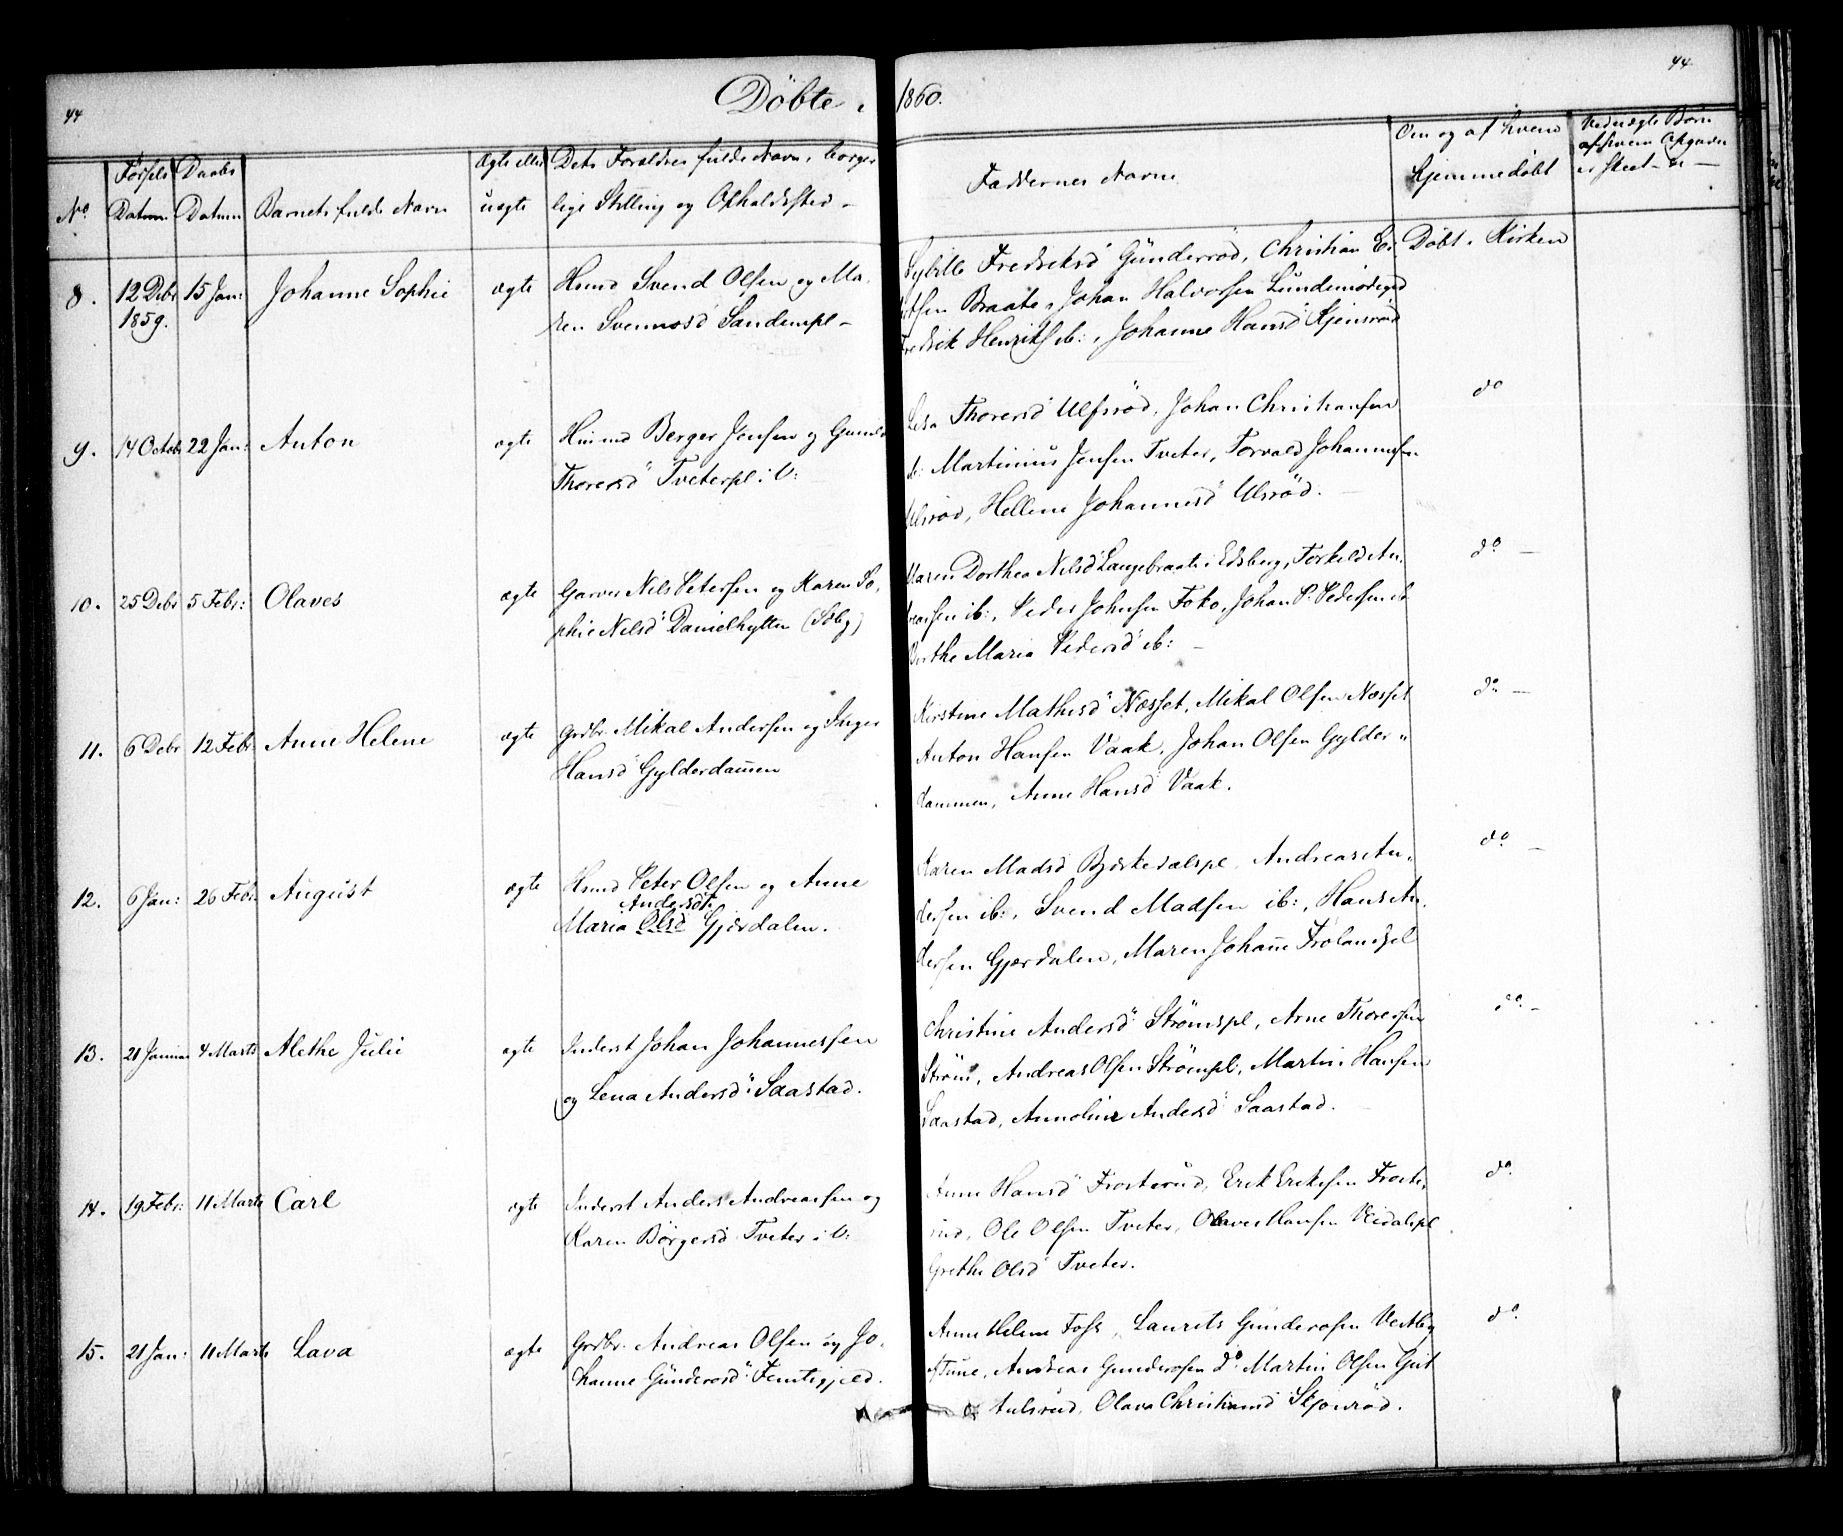 44
44
Döbte i 1860.
No
Fødsels Datum
Daabs Datum
Barnets fulde Navn
Ægte eller uægte
Dets Forældres fulde Navn, borger
lige Stilling og Opholdssted -
Faddernes Navne
Om og af hvem
hjemmedøbt
Ved uægte Børn
af hvem Opgaven
er skeet
8. 12 Debr 1859. 15 Jan: Johanne Sophie ægte
Husmd Svend Olsen og Ma,
ren Svennesd Sandempl -
Sybille Fredriksd Gunderrød, Christian
Braate, Johan Halvorsen
Fredrik Henriks ib:, Johanne Hansd Skjønrød
Døbt i Kirken
9. 14 Octobr 22 Jan: Anton ægte
Husmd Berger Jensen og Gunild
Thoresd Tveterpl: V:
Lisa Thoresd Ulfsrød, Johan Christiansen
ib: Martinius Jensen Tveter, Torvald Johannesen
Ulsrød, Hellene Johannesd Ulsrød. -
do
10. 25 Debr 5 Febr: Olaves ægte
Garver Nils Petersen og Karen So,
phie Nilsd Danielhytten (Sbg)
Maren Dorthea Nilsd Langebraate i Edsberg, Torkild An,
dreassen ib:, Peder Johnsen Toko, Johan P. Pedersen ib
Berthe Maria Pedersd ib: -
do -
11. 6 Debr 12 Febr: Anne Helene ægte
Grdbr. Mikal Andersen og Inger
Hansd Gylderdammen
Kirstine Mathisd Næsset, Mikal Olsen Næsset
Anton Hansen Vaak, Johan Olsen Gylder
dammen, Anne Hansd Vaak.
do -
12. 6 Jan: 26 Febr: August ægte
Husmd Peter Olsen og Anne
Andersdt
Maria Olsd Gjærdalen.
Karen Madsd Bjørkedalspl, Andreas An,
dersen ib:, Svend Madsen ib:, Hans An,
dersen Gjærdalen, Maren Johanne Frølandspl
do -
13. 21 Januar 4 Marts Alethe Julie ægte
Inderst Johan Johannessen
og Lena Andersd Saastad.
Christine Andersd Strømspl, Arne Thoresen
Strøm, Andreas Olsen Strømpl, Martin Hansen
Saastad, Annoline Andersd Saastad.
do -
14. 19 Febr: 11 Marts Carl ægte
Inderst Anders Andreassen og
Karen Børgersd Tveter i V:
Anne Hansd Frosterud, Erik Eriksen Froste,
rud, Ole Olsen Tveter, Olaves Hansen
Grethe Olsd Tveter.
do
15. 21 Jan: 11 Marts Lava ægte
Grdbr. Andreas Olsen og Jo,
hanne Gundersd Femtigjeld.
Anne Helene Foss, Laurits Gundersen Vestby
i Tune, Andreas Gundersen do Martin Olsen
Olava Christiansd Skjønrød.
do